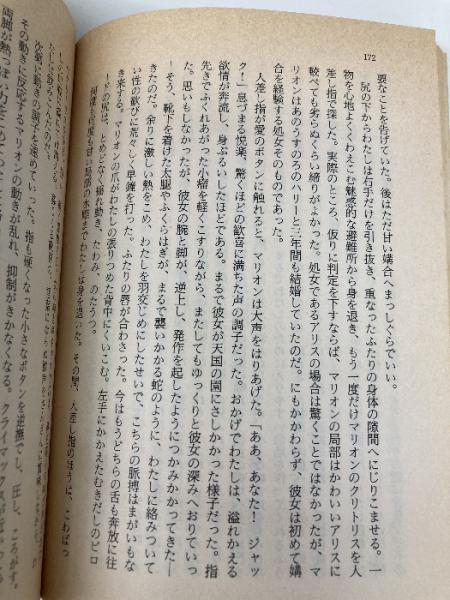 172
要なことを告げていた。後はただ甘い媾合へまっしぐらでいい。
尻の下からわたしは右手だけを引き抜き、重なったふたりの身体の隙間へにじりこませる。一
物を心地よくくわえこむ魅惑的な避難所から身を退き、もう一度だけマリオンのクリトリスを人
差し指で探した。実際のところ、仮りに判定を下すならば、マリオンの局部はかわいいアリスに
較べても劣らぬくらい締りがよかった。処女であるアリスの場合は驚くことではなかったが、マ
リオンはあのうすのろのハリーと三年間も結婚していたのだ。にもかかわらず、彼女は初めて媾
合を経験する処女そのものであった。
人差し指が愛のボタンに触れると、マリオンは大声をはりあげた。「ああ、あなた！　ジャッ
ク！」息づまる悦楽、驚くほどの歓喜に満ちた声の調子だった。おかげでわたしは、溢れかえる
欲情が奔流し、身ぶるいしたほどである。まるで彼女が天国の園にさしかかった様子だった。指
先きでふくれあがった小瘤を軽くこすりながら、またしてもゆっくりと彼女の深みへおりていっ
た。思いもしなかったが、彼女の腕と脚が、逆上し、発作を起したようにつかみかかってきた——
そう、靴下を着けた太腿やふくらはぎが、まるで襲いかかる蛇のように、わたしに絡みついて
きたのだ。余りに激しい熱をこめ、わたしを羽交じめにしたせいで、こちらの脈搏はまがいもな
い性の歓びに荒々しく早鐘を打つ。ふたりの唇が合わさった。今はもうどちらの舌も奔放に往
き来する。マリオンの爪がわたしの張りつめた背中にくいこむ。左手にかかえたむきだしのビロ
ードの尻は、とめどなく揺れ動き、たわみ、のたうつ。
その動きに反応するマリオンの動きが乱れ、抑制がきかなくなる。クライマックスが